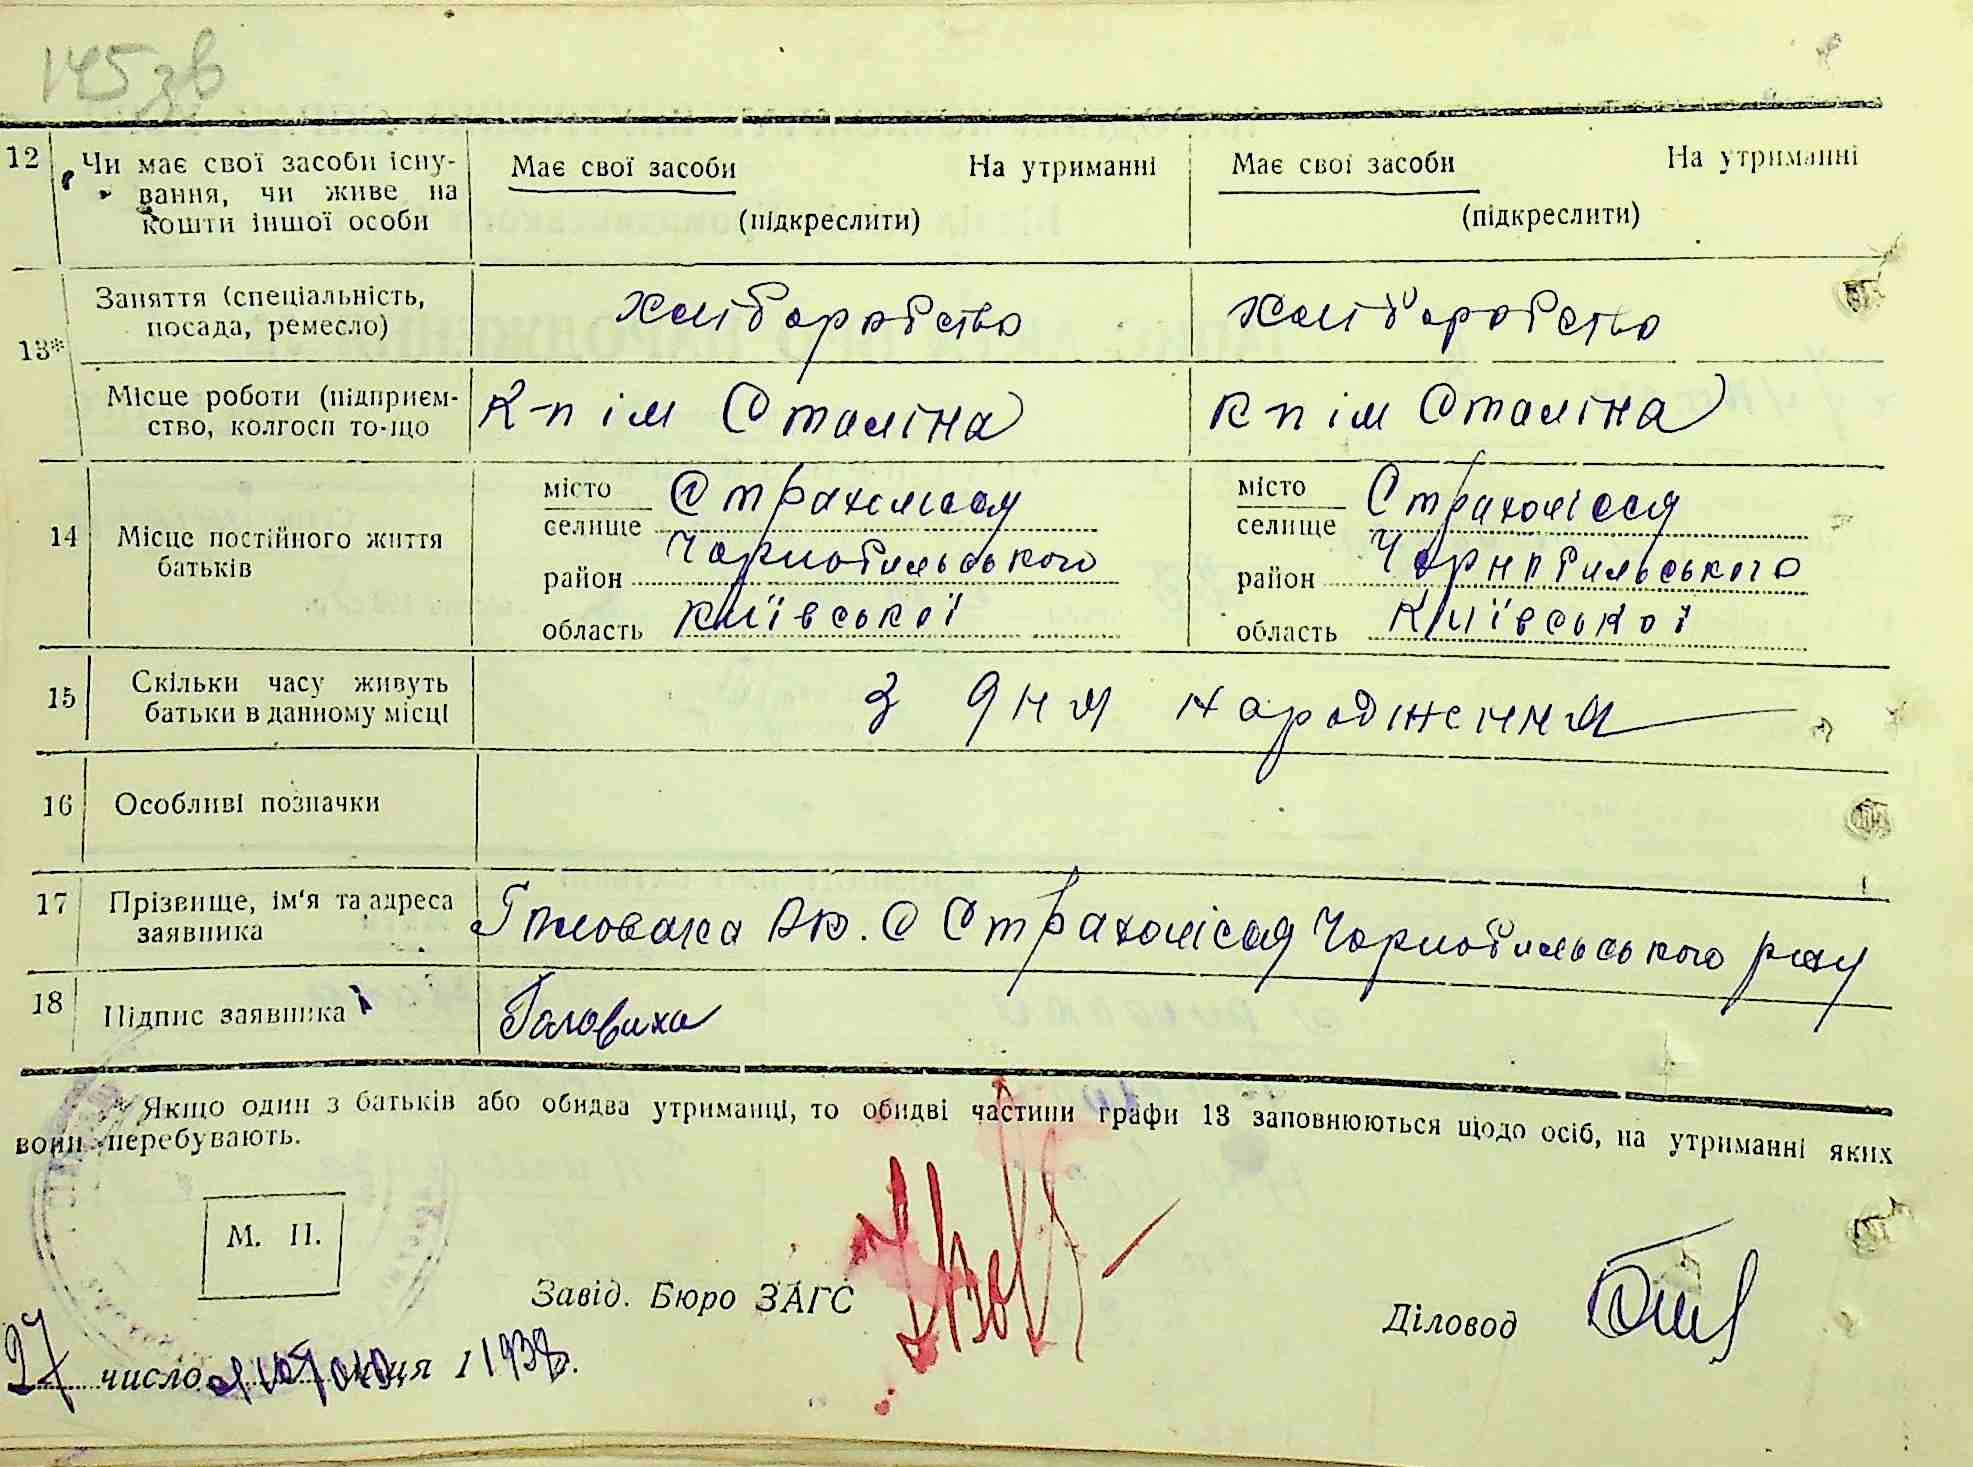 145 зв
12 Чи має свої засоби існу-
вання, чи живе на
кошти іншої особи
Має свої засоби На утриманні
(підкреслити)
Має свої засоби На утриманні
(підкреслити)
13*
Заняття (спеціальність,
посада, ремесло)
хліборобство
хліборобство
Місце роботи (підприєм-
ство, колгосп то-що
К-п ім Сталіна
к п ім Сталіна
14 Місце постійного життя
батьків
місто
селище Страхолісся
район Чорнобильського
область Київської
місто
селище Страхолісся
район Чорнобильського
область Київської
15 Скільки часу живуть
батьки в данному місці
З дня народження
16 Особливі позначки
17 Прізвище, ім'я та адреса
заявника
С Страхолісся Чорнобильського
18 Підпис заявника
Головаха
* Якщо один з батьків або обидва утриманці, то обидві частини графи 13 заповнюються щодо осіб, на утриманні яких
вони перебувають.
М. П.
Завід. Бюро ЗАГС
Діловод
27 число лютого м-ця 1 1938 р.